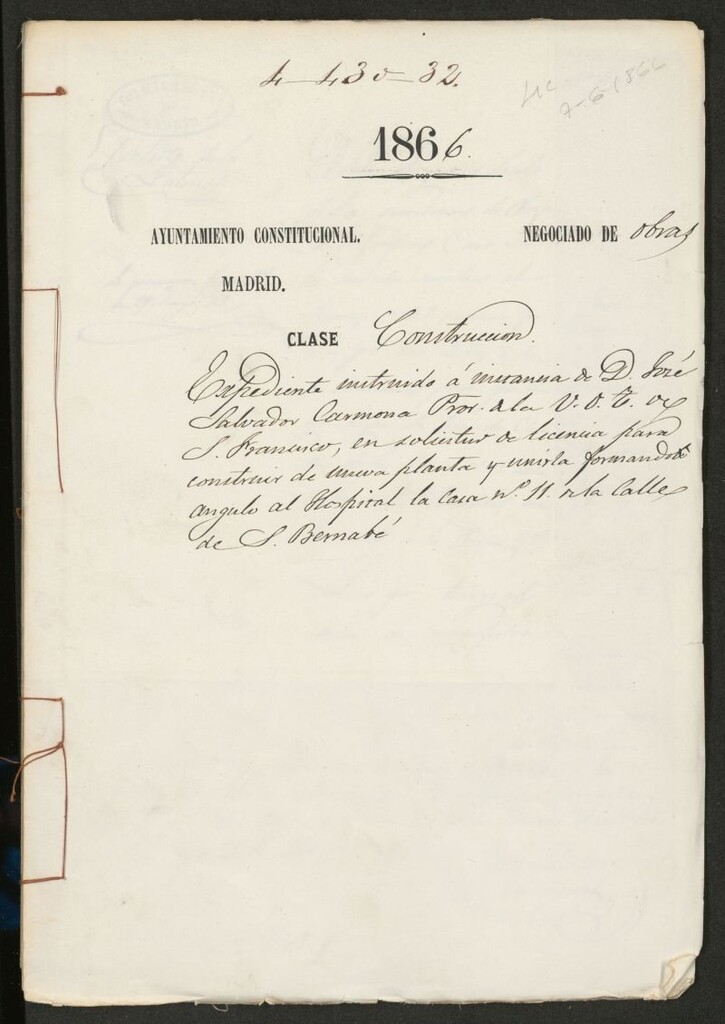 4-430-32.
7-6-1866
1866.
AYUNTAMIENTO CONSTITUCIONAL. NEGOCIADO DE obras
MADRID.
CLASE Construccion.
Expediente instruido á instancia de D. José
Salvador Carmona Pror. de la V. O. T. de
S. Francisco, en solicitud de licencia para
construir de nueva planta y unirla formando
angulo al Hospital la Casa nº. 11. de la Calle
de S. Bernabé